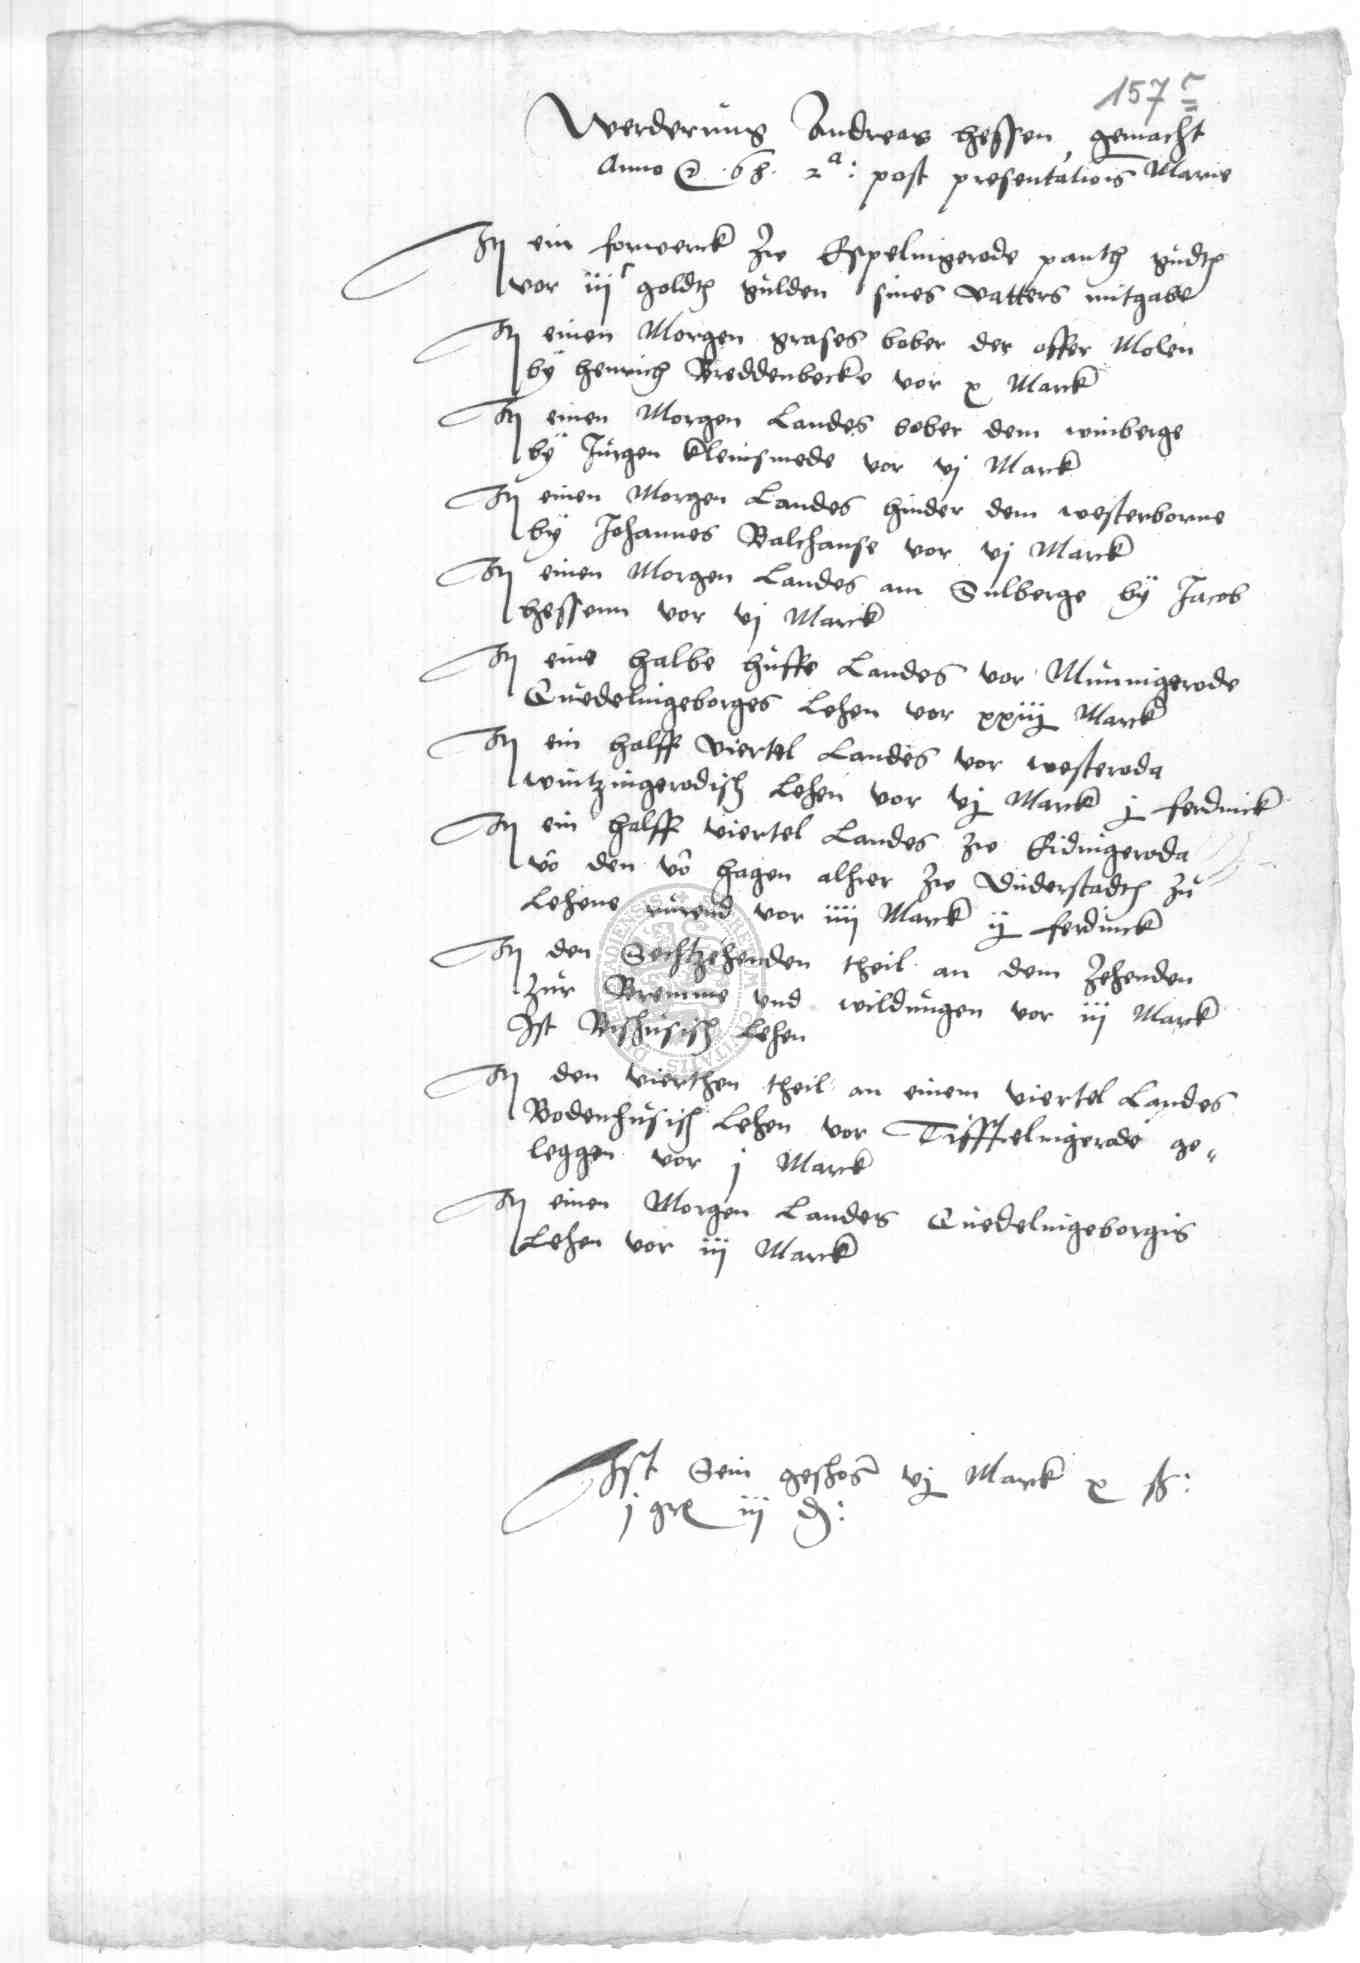 157r
Werderung Andreas hessen gemacht
Anno @ .68. 2a: post presentationis Marie
It ein forwerck zw Espelingerode panth gudth
vor iijc goldth gulden sines vatters mitgabe
It einen Morgen grases bober der offer Molen
by henrich Breddenbecke vor x Marck
It einen Morgen Landes bober dem winberge
by Jurgen kleinsmede vor vj Marck
It einen Morgen Landes hinder dem westerborne
by Johannes Balchanse vor vj Marck
It einen Morgen Landes am Sulberge by Jacob
hessenn vor vj Marck
It eine halbe huffe Landes vor Minnigerode
Quedelingeborges Lehen vor xxiiij Marck
It ein halff viertel Landes vor westeroda
wintzingerodisch Lehen vor vj Marck j ferdinck
It ein halff viertel Landes zw Esdingeroda
vo den vo hagen alhier zw Duderstadth zu
Lehene rurend vor iiij Marck ij ferdinck
It den Sechtzehenden theil an dem Zehenden
zur Bremme vnd wildungen vor iij Marck
Ist Bishusisch Lehen
It den vierthen theil an einem viertel Landes
Bodenhusisch Lehen vor Tiftelingerode ge„
leggen vor j Marck
It einen Morgen Landes Quedelingeborgis
Lehen vor iij Marck
Ist Sein geschos vj Marck x ß:
j gr iij d: